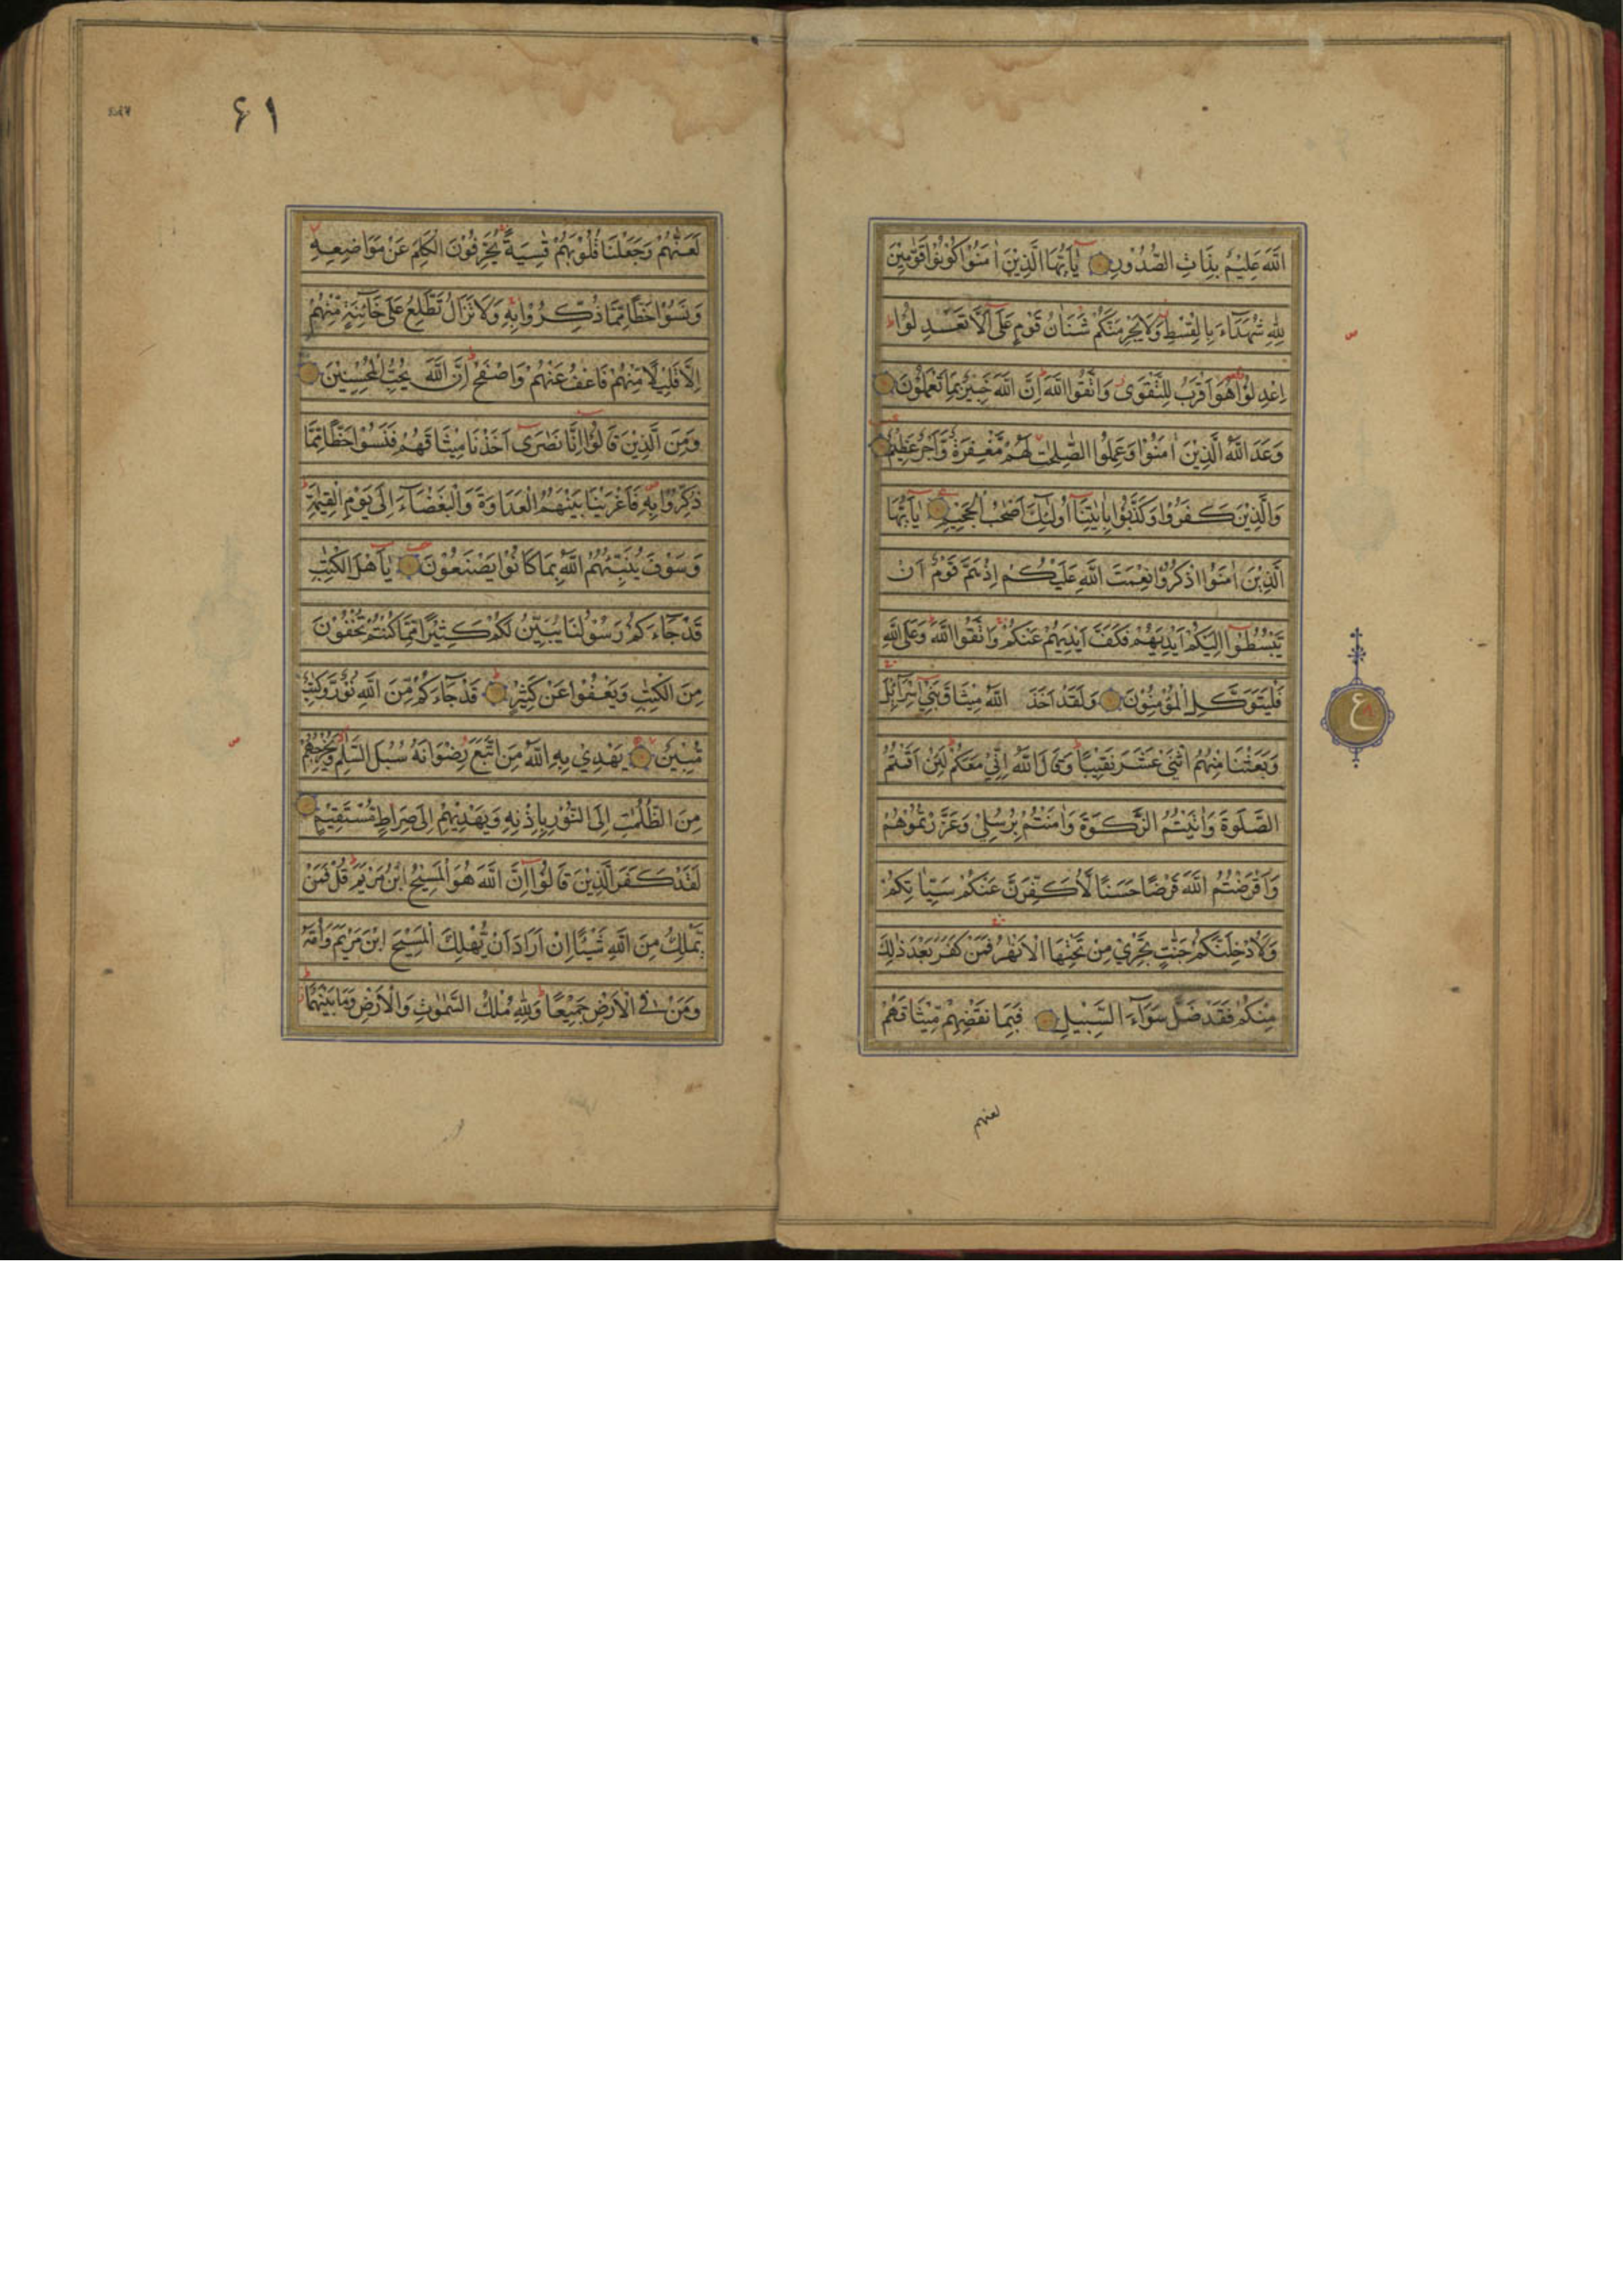 اللّٰهَ عَلِيْمٌ بِذَاتِ الصُّدُوْرِ يٰاَيُّهَا الَّذِيْنَ اٰمَنُوْا كُوْنُوْا قَوّٰمِيْنَ
لِلّٰهِ شُهَدَآءَ بِالْقِسْطِ وَلَا يَجْرِمَنَّكُمْ شَنَاٰنُ قَوْمٍ عَلٰٓى اَلَّا تَعْدِلُوْا ط
اِعْدِلُوْا هُوَ اَقْرَبُ لِلتَّقْوٰى وَاتَّقُوا اللّٰهَ اِنَّ اللّٰهَ خَبِيْرٌ بِمَا تَعْمَلُوْنَ
وَعَدَ اللّٰهُ الَّذِيْنَ اٰمَنُوْا وَعَمِلُوا الصّٰلِحٰتِ لَهُمْ مَّغْفِرَةٌ وَّاَجْرٌ عَظِيْمٌ
وَالَّذِيْنَ كَفَرُوْا وَكَذَّبُوْا بِاٰيٰتِنَآ اُولٰٓئِكَ اَصْحٰبُ الْجَحِيْمِ يٰاَيُّهَا
الَّذِيْنَ اٰمَنُوْا اذْكُرُوْا نِعْمَتَ اللّٰهِ عَلَيْكُمْ اِذْ هَمَّ قَوْمٌ اَنْ
يَّبْسُطُوْٓا اِلَيْكُمْ اَيْدِيَهُمْ فَكَفَّ اَيْدِيَهُمْ عَنْكُمْ وَاتَّقُوا اللّٰهَ وَعَلَى اللّٰهِ
فَلْيَتَوَكَّلِ الْمُؤْمِنُوْنَ وَلَقَدْ اَخَذَ اللّٰهُ مِيْثَاقَ بَنِيْٓ اِسْرَآئِلَ
وَبَعَثْنَا مِنْهُمُ اثْنَيْ عَشَرَ نَقِيْبًا وَقَالَ اللّٰهُ اِنِّيْ مَعَكُمْ لَئِنْ اَقَمْتُمُ
الصَّلٰوةَ وَاٰتَيْتُمُ الزَّكٰوةَ وَاٰمَنْتُمْ بِرُسُلِيْ وَعَزَّرْتُمُوْهُمْ
وَاَقْرَضْتُمُ اللّٰهَ قَرْضًا حَسَنًا لَّاُكَفِّرَنَّ عَنْكُمْ سَيِّاٰتِكُمْ
وَلَاُدْخِلَنَّكُمْ جَنّٰتٍ تَجْرِيْ مِنْ تَحْتِهَا الْاَنْهٰرُ فَمَنْ كَفَرَ بَعْدَ ذٰلِكَ
مِنْكُمْ فَقَدْ ضَلَّ سَوَآءَ السَّبِيْلِ فَبِمَا نَقْضِهِمْ مِّيْثَاقَهُمْ
لعنهم
ع
۶۱
لَعَنّٰهُمْ وَجَعَلْنَا قُلُوْبَهُمْ قٰسِيَةً يُحَرِّفُوْنَ الْكَلِمَ عَنْ مَوَاضِعِهِ
وَنَسُوْا حَظًّا مِّمَّا ذُكِّرُوْا بِهِ وَلَا تَزَالُ تَطَّلِعُ عَلٰى خَآئِنَةٍ مِّنْهُمْ
اِلَّا قَلِيْلًا مِّنْهُمْ فَاعْفُ عَنْهُمْ وَاصْفَحْ اِنَّ اللّٰهَ يُحِبُّ الْمُحْسِنِيْنَ
وَمِنَ الَّذِيْنَ قَالُوْٓا اِنَّا نَصٰرٰٓى اَخَذْنَا مِيْثَاقَهُمْ فَنَسُوْا حَظًّا مِّمَّا
ذُكِّرُوْا بِهِ فَاَغْرَيْنَا بَيْنَهُمُ الْعَدَاوَةَ وَالْبَغْضَآءَ اِلٰى يَوْمِ الْقِيٰمَةِ
وَسَوْفَ يُنَبِّئُهُمُ اللّٰهُ بِمَا كَانُوْا يَصْنَعُوْنَ يٰاَهْلَ الْكِتٰبِ
قَدْ جَآءَكُمْ رَسُوْلُنَا يُبَيِّنُ لَكُمْ كَثِيْرًا مِّمَّا كُنْتُمْ تُخْفُوْنَ
مِنَ الْكِتٰبِ وَيَعْفُوْا عَنْ كَثِيْرٍ قَدْ جَآءَكُمْ مِّنَ اللّٰهِ نُوْرٌ وَّكِتٰبٌ
مُّبِيْنٌ يَهْدِيْ بِهِ اللّٰهُ مَنِ اتَّبَعَ رِضْوَانَهُ سُبُلَ السَّلٰمِ وَيُخْرِجُهُمْ
مِنَ الظُّلُمٰتِ اِلَى النُّوْرِ بِاِذْنِهِ وَيَهْدِيْهِمْ اِلٰى صِرَاطٍ مُّسْتَقِيْمٍ
لَقَدْ كَفَرَ الَّذِيْنَ قَالُوْٓا اِنَّ اللّٰهَ هُوَ الْمَسِيْحُ ابْنُ مَرْيَمَ قُلْ فَمَنْ
يَّمْلِكُ مِنَ اللّٰهِ شَيْـًٔا اِنْ اَرَادَ اَنْ يُّهْلِكَ الْمَسِيْحَ ابْنَ مَرْيَمَ وَاُمَّهُ
وَمَنْ فِي الْاَرْضِ جَمِيْعًا وَلِلّٰهِ مُلْكُ السَّمٰوٰتِ وَالْاَرْضِ وَمَا بَيْنَهُمَا